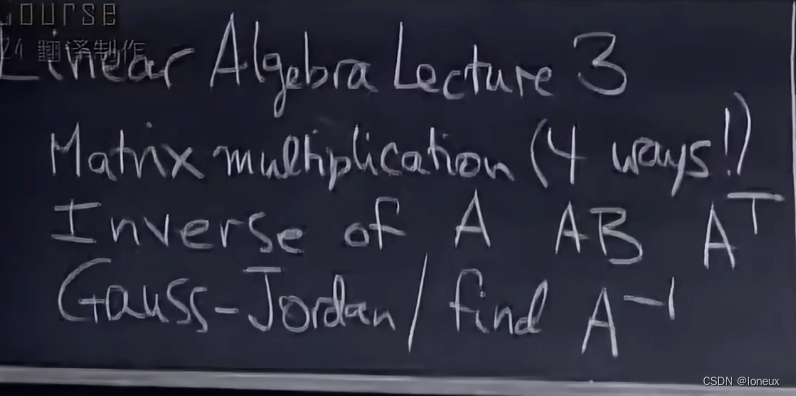 ourse
24 翻译制作
Linear Algebra Lecture 3
Matrix multiplication (4 ways!)
Inverse of A AB A^T
Gauss-Jordan / find A^-1
CSDN @loneux